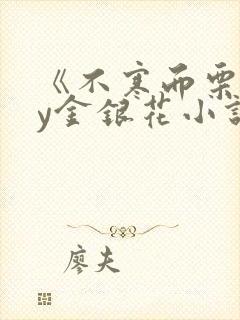 《不寒而栗
y金银花小说
廖夫